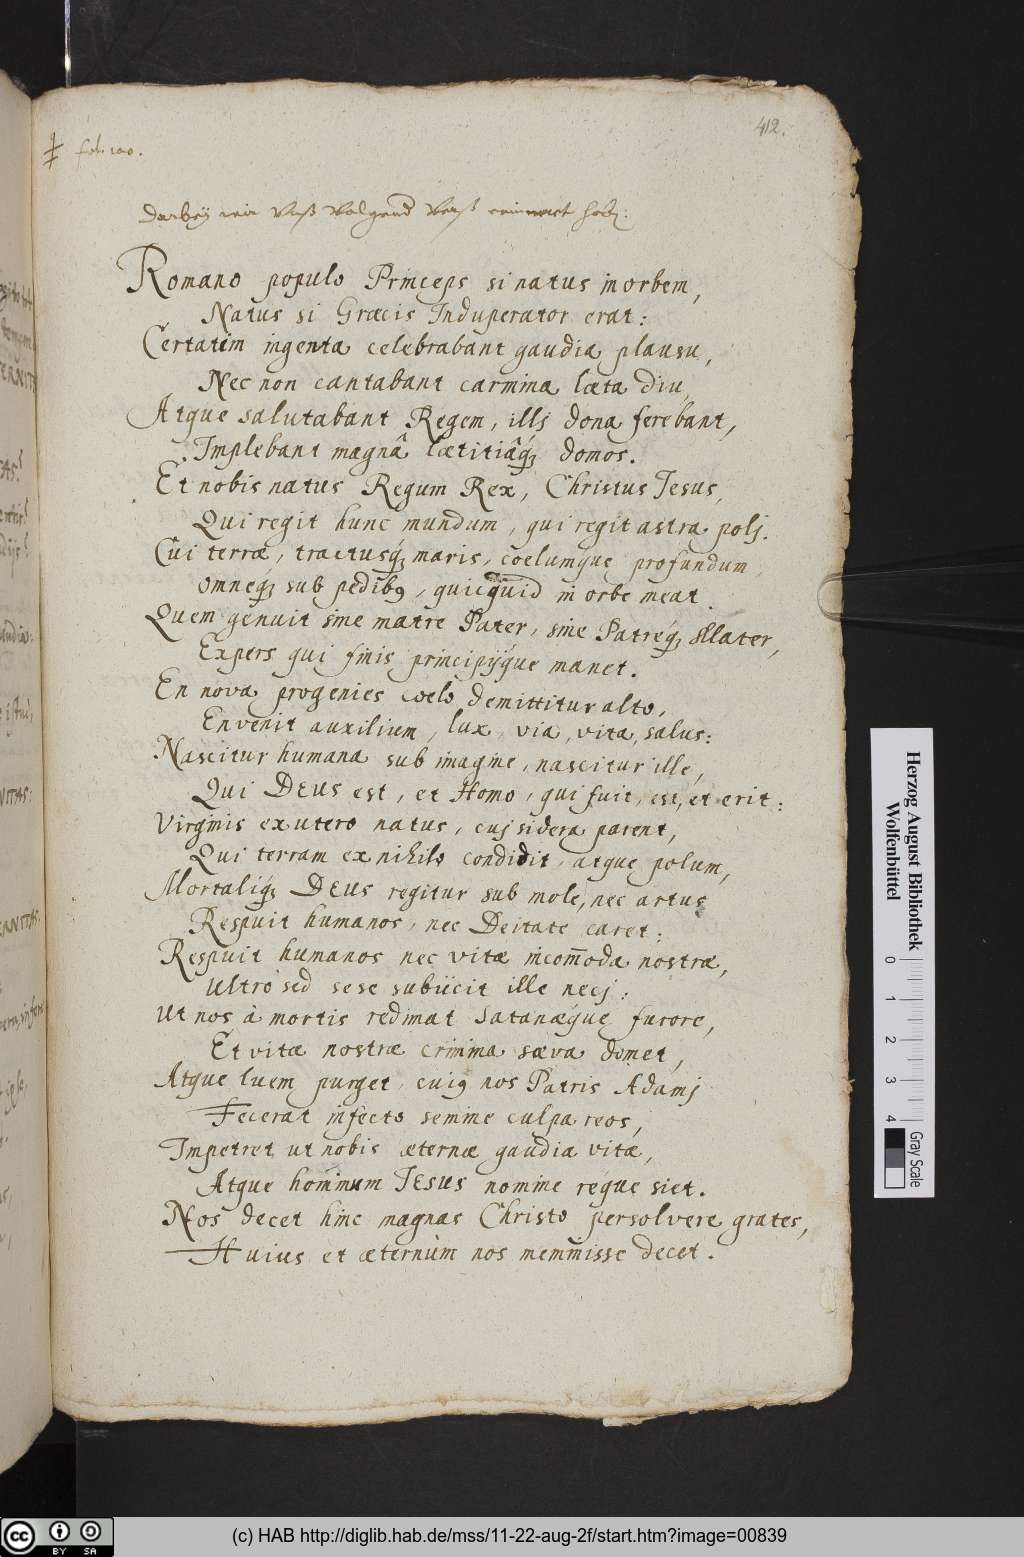 412.
fol. 100.
Darbeÿ wir Vnß Volgend Verß erinnert
Romano populo Princeps si natus in orbem,
Natus si Græcis Induperator erat:
Certatim ingenta celebrabant gaudia plausu,
Nec non cantabant carmina læta diu,
Atque salutabant Regem, illj dona ferebant,
Implebant magnâ lætitiâq́ꝫ domos.
Et nobis natus Regum Rex, Christus Jesus,
Qui regit hunc mundum, qui regit astra polj.
Cui terræ, tractusq́ꝫ maris, cœlumque profundum,
omneqꝫ sub pedibꝰ, quicquid in orbe meat.
Quem genuit sine matre Pater, sine Patreq́ꝫ Mater,
Expers quj finis principijq́ue manet.
En nova progenies cœlo demittitur alto,
En venit auxilium, lux, via, vita, salus:
Nascitur humana sub imagine, nascitur ille,
Qui DEUS est, et Homo, qui fuit, est, et erit:
Virginis ex utero natus, cuj sidera parent,
Qui terram ex nihilo condidit, atque polum,
Mortaliqꝫ DEUS regitur sub mole, nec artus
Respuit humanos, nec Deitate caret:
Respuit humanos nec vitæ incom̄oda nostræ,
Ultrò sed sese subijcit ille necj:
Ut nos à mortis redimat Satanæq́ue furore,
Et vitæ nostræ crimina sæva domet,
Atque luem purget, cuiꝰ nos Patris Adamj
Fecerat infecto semine culpa reos,
Impetret ut nobis æternæ gaudia vitæ,
Atque hominum JESUS nomine req́ue siet.
Nos decet hinc magnas Christo persolvere grates,
Huius et æternùm nos meminisse decet.
Herzog August Bibliothek
Wolfenbüttel
0 1 2 3 4
Gray Scale
cc BY SA
(c) HAB http://diglib.hab.de/mss/11-22-aug-2f/start.htm?image=00839